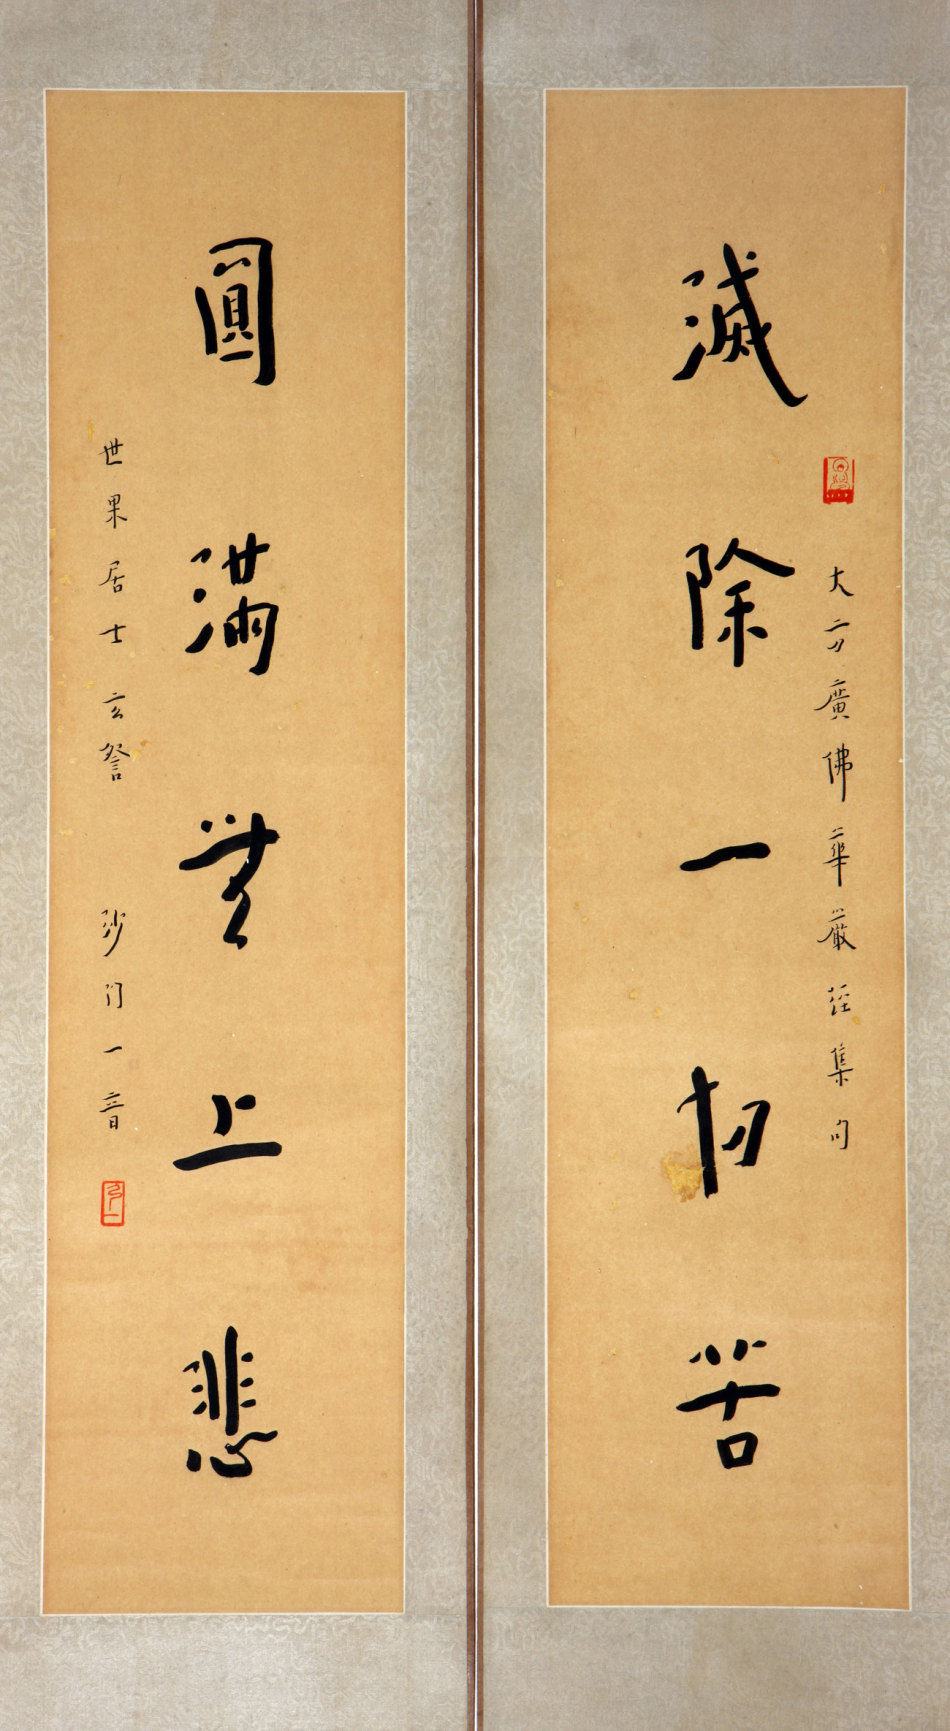 大方廣佛華嚴經集句
滅除一切苦
圓滿無上悲
世果居士玄詧 沙門一音
弘一